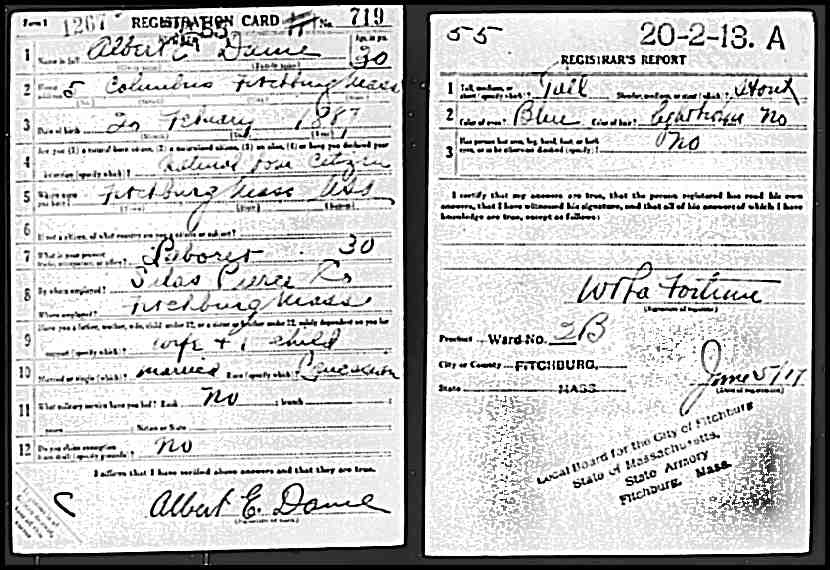 Form 1 1267 REGISTRATION CARD No. 719
NUMBER 55
1 Name in full Albert E Dame Age, in yrs. 30
(Given name) (Family name)
2 Home address 5 Columbus Fitchburg Mass
(No.) (Street) (City) (State)
3 Date of birth February 1887
(Month) (Day) (Year)
4 Are you (1) a natural born citizen, (2) a naturalized citizen, (3) an alien, (4) or have you declared your
intention (specify which)? Natural born Citizen
5 Where were you born? Fitchburg Mass USA
(Town) (State) (Nation)
6 If not a citizen, of what country are you a citizen or subject?
7 What is your present trade, occupation, or office? Laborer 30
8 By whom employed? Silas Pierce Co
Where employed? Fitchburg Mass
9 Have you a father, mother, wife, child under 12, or a sister or brother under 12, solely dependent on you for
support (specify which)? Wife + 1 child
10 Married or single (which)? married Race (specify which)? Caucasian
11 What military service have you had? Rank No ; branch ;
years ; Nation or State
12 Do you claim exemption from draft (specify grounds)? No
I affirm that I have verified above answers and that they are true.
Albert E. Dame
(Signature or mark)
55 20-2-13. A
REGISTRAR'S REPORT
1 Tall, medium, or short (specify which)? Tall Slender, medium, or stout (which)? Stout
2 Color of eyes? Blue Color of hair? No
3 Has person lost arm, leg, hand, foot, or both eyes, or is he otherwise disabled (specify)? No
I certify that my answers are true, that the person registered has read his own
answers, that I have witnessed his signature, and that all of his answers of which I have
knowledge are true, except as follows:
Fortune
(Signature of registrar)
Precinct Ward No. 2B
City or County FITCHBURG,
State MASS June 5/17
(Date of registration)
Local Board for the City of Fitchburg
State of Massachusetts,
State Armory
Fitchburg, Mass.